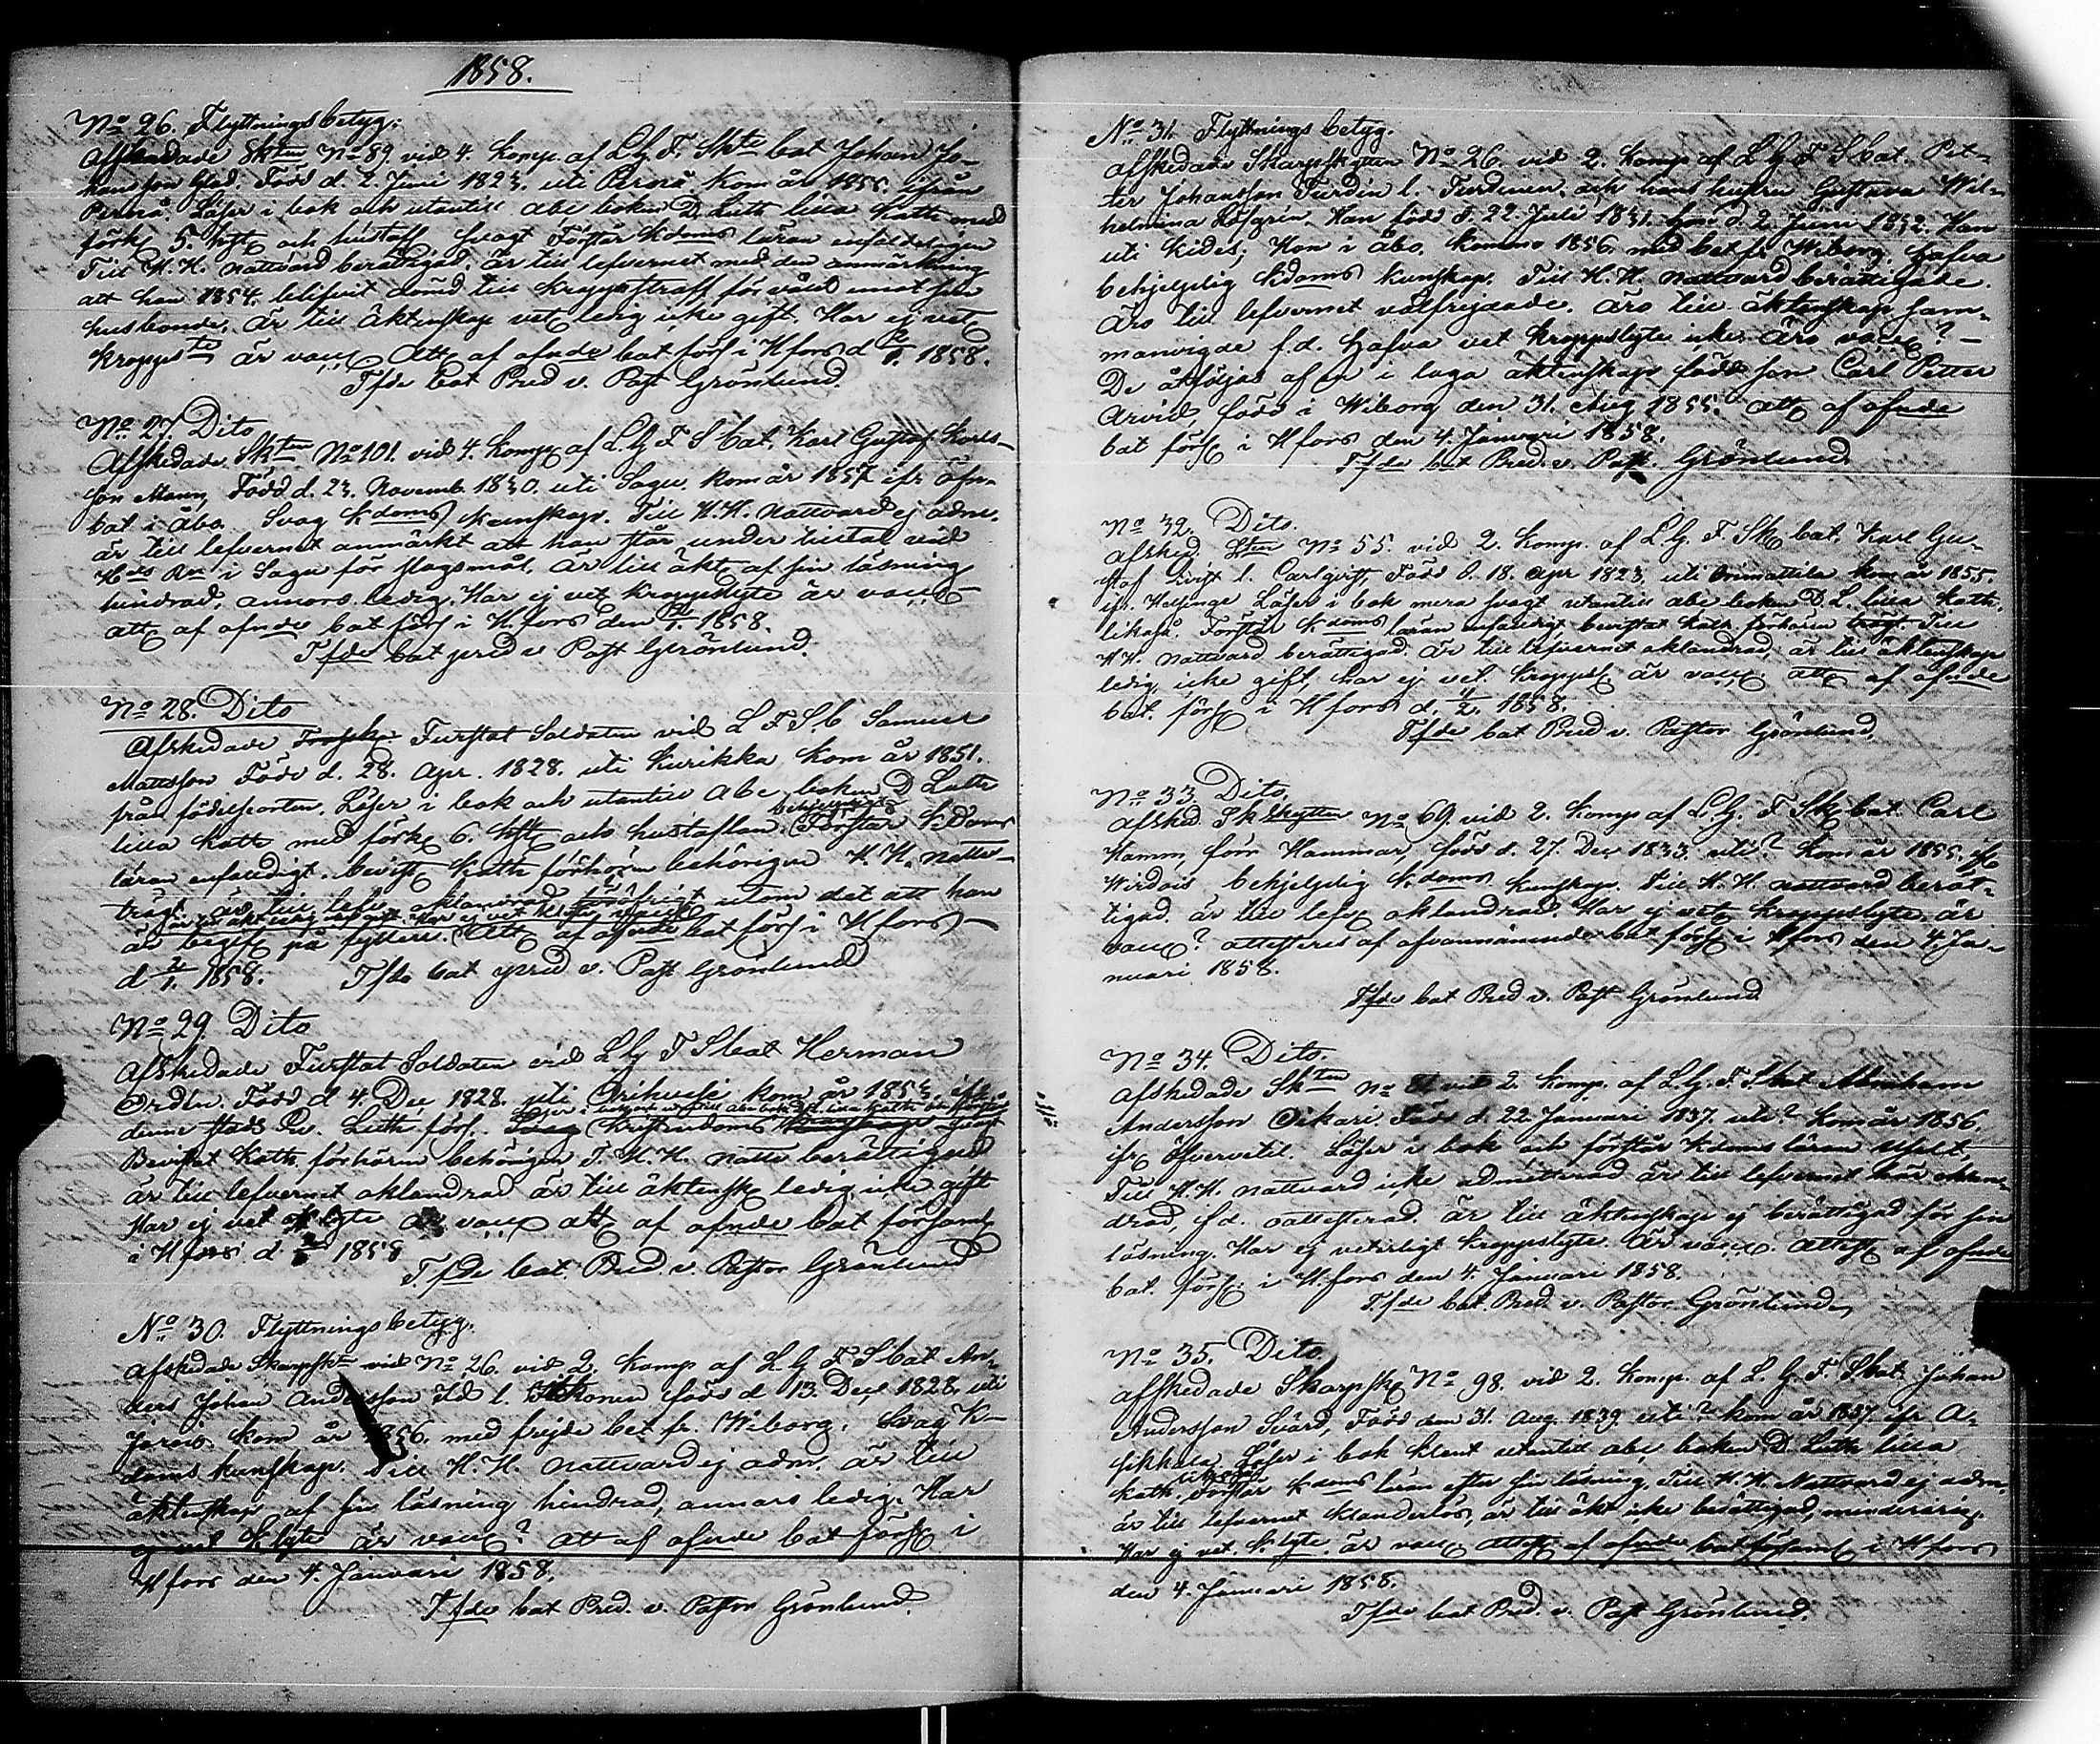 1858.
No 26. Flyttningsbetyg.
Afskedade Skten No 89 vid 4. Komp. af L. G. F. Skte bat Johan Jo-
hansson Glad. Född d. 2. Juni 1823. uti Pernå. Kom år 1855. ifrån
Pernå. Läser i bok och utantill abc boken D. Luth lilla Kath med
förk 5. hft och hustafl svagt Förstår Kdoms läran enfaldeligen
Till H. H. Nattvard berättigad. Är till lefvernet med den anmärkning
att han 1854. blifvit dömd till kroppsstraff för våld emot sin
husbonde. Är till äktenskap vet ledig icke gift. Har ej vet
kroppste är vacc. Att af ofnde bat förs i Hfors d 4/1. 1858.
Tfde bat Pred v. Past Grönlund.
No 27. Dito
Afskedade Skten No 101. vid 4. Komp af L. G. F S bat. Karl Gustaf Karls-
son Mann, Född d. 23. Novemb. 1830. uti Sagu. Kom år 1857 ifr ofn-
bat i Åbo. Svag Kdoms kunskap. Till H. H. Nattvard ej adm.
är till lefvernet anmärkt att han står under tilltal vid
Hds Rn i Sagu för slagsmål. Är till äkt. af sin läsning
hindrad, annors ledig. Har ej vet kroppslyte är vacc
att af ofnde bat förs i H.fors den 4/1. 1858.
Tfde bat pred v Past Grönlund.
No 28. Dito
Afskedade Furstat Soldaten vid L F S b Samuel
Mattsson Född d. 28. Apr. 1828. uti Kurikka Kom år 1851.
från födelseorten. Läser i bok och utantill Abc boken D Luth
lilla Kath med förk 6. hft och hustaflan. behjelpligt Förstår Kdoms
läran enfaldigt. bevist Kath förhören behörigen H. H. Nattv-
är till lefv oklandrad utom det att han
är till äkt. ledig icke gift. Har ej vet
är begif på fylleri. Att af ofnde bat förs i Hfors
d 4/1. 1858. Tfde bat pred v. Past Grönlund
No 29. Dito
Afskedade Furstat Soldaten vid L G F S bat Herman
Ordén. Född d 4. Dec 1828. uti Orihvesi kom år 1853. ifr
denna stads Ry. Luth förs. Kristendoms svagt
Bevistat Kath. förhören behörigen T. H. H. Nattv berättigad
är till lefvernet oklandrad är till äktensk ledig icke gift
Har ej vet lyte är vacc att af ofnde bat församl
i Hfors. d. 4/1 1858
T. fde bat. Pred. v. Pastor Grönlund
No 30. Flyttningsbetyg.
Afskedade Skarpskn vid No 26. vid 2. Komp af L. G F S bat An-
ders Johan Andersson Ild l. född d 13. Dec 1828. uti
Jorois kom år 1856. med frejde bet fr. Wiborg. Svag K-
doms kunskap. Till H. H. Nattvard ej adm. är till
äktenskap af sin läsning hindrad, annars ledig. Har
ej vet Klyte är vacc? att af ofnde bat förs i
Hfors den 4. Januari 1858.
Tfde bat Pred. v. Pastor Grönlund.
No 31. Flyttnings betyg.
Afskedade Skarpskytten No 26. vid 2. Komp af L G F S bat. Pet-
ter Johansson Turdin l. Turdinen. och hans hustru Gustava Wil-
helmina Löfgrén. Han född d. 22. Juli 1831. hon d. 2. Juni 1832. Han
uti Kides; Hon i Åbo. Komna 1856 med bet fr Wiborg. Hafva
behjelpelig Kdoms kunskap. Till H. H. Nattvard berättigade.
Äro till lefvernet välfrejdade. Äro till äktenskap sam-
manvigde f. d. Hafva vet kroppslyte icke. Äro vacc? -
De åtföljas af en i laga äktenskap född son Carl Petter
Arvid, född i Wiborg den 31. Aug 1855. Att af ofnde
bat förs i Hfors den 4. Januari 1858.
Tfde bat Pred. v. Past. Grönlund.
No 32. Dito.
Afsked. Skten No 55. vid 2. Komp. af L. G. F. Sk bat. Karl Gu-
staf Qvist l. Carlqvist, Född d. 18. Apr 1823 uti Orimattila. kom år 1855.
ifr. Helsinge Läser i bok mera svagt utantill abc boken D. L. lilla Kath.
likaså. Förstår Kdoms läran enfaldigt bevistat Kath. förhören trögt. Till
H. H. Nattvard berättigad. Är till lefvernet oklandrad, är till äktenskap
ledig, icke gift, har ej vet. kroppsl är vacc att af ofnde
bat. förs i Hfors d. 4/2. 1858.
Tfde bat Pred v. Pastor Grönlund.
No 33 Dito.
Afsked. Skskytten No 69 vid 2. Komp af L. G. F Sk bat. Carl
Hamm, förr Hammar, född d. 27. Dec 1833. uti? Kom år 1855. ifr
Wirdois behjelpelig Kdoms kunskap. Till H. H. Nattvard berät-
tigad. är till lefv oklandrad. Har ej vet kroppslyte. är
vacc? attesteras af ofvannämnde bat förs i Hfors den 4. Ja-
nuari 1858.
Tfde bat Pred v. Past Grönlund
No 34. Dito.
Afskedade Skten No vid 2. Komp. af L. G. F. Sbat Abraham
Andersson Oikari. Född d. 22 Januari 1837. uti? Kom år 1856.
ifr Öfvervetil. Läser i bok och förstår Kdoms läran uselt,
Till H. H. Nattvard icke admitterad är till lefvernet här oklan-
drad, f. d. oattesterad. är till äktenskap ej berättigad för sin
läsning. Har ej veterligt kroppslyte. Är vacc. Attest af ofnde
bat. förs i H.fors den 4. Januari 1858.
T. fde bat. Pred. v. Pastor Grönlund,
No 35. Dito.
Afskedade Skarpsk No 98. vid 2. Komp. af L. G. F. Sbat Johan
Andersson Svärd, Född den 31. Aug. 1839 uti? kom år 1857. ifr A-
sikkala. Läser i bok klent utantill abc boken D. Luth lilla
Kath. Förstår Kdoms läran efter sin läsning. Till H. H. Nattvard ej adm.
är till lefvernet klanderlös, är till äkt icke berättigad, minderårig.
Har ej vet. Klyte. är vacc attest af ofnde bat församl i Hfors
den 4. Januari 1858.
Tfde bat Pred. v. Past Grönlund.